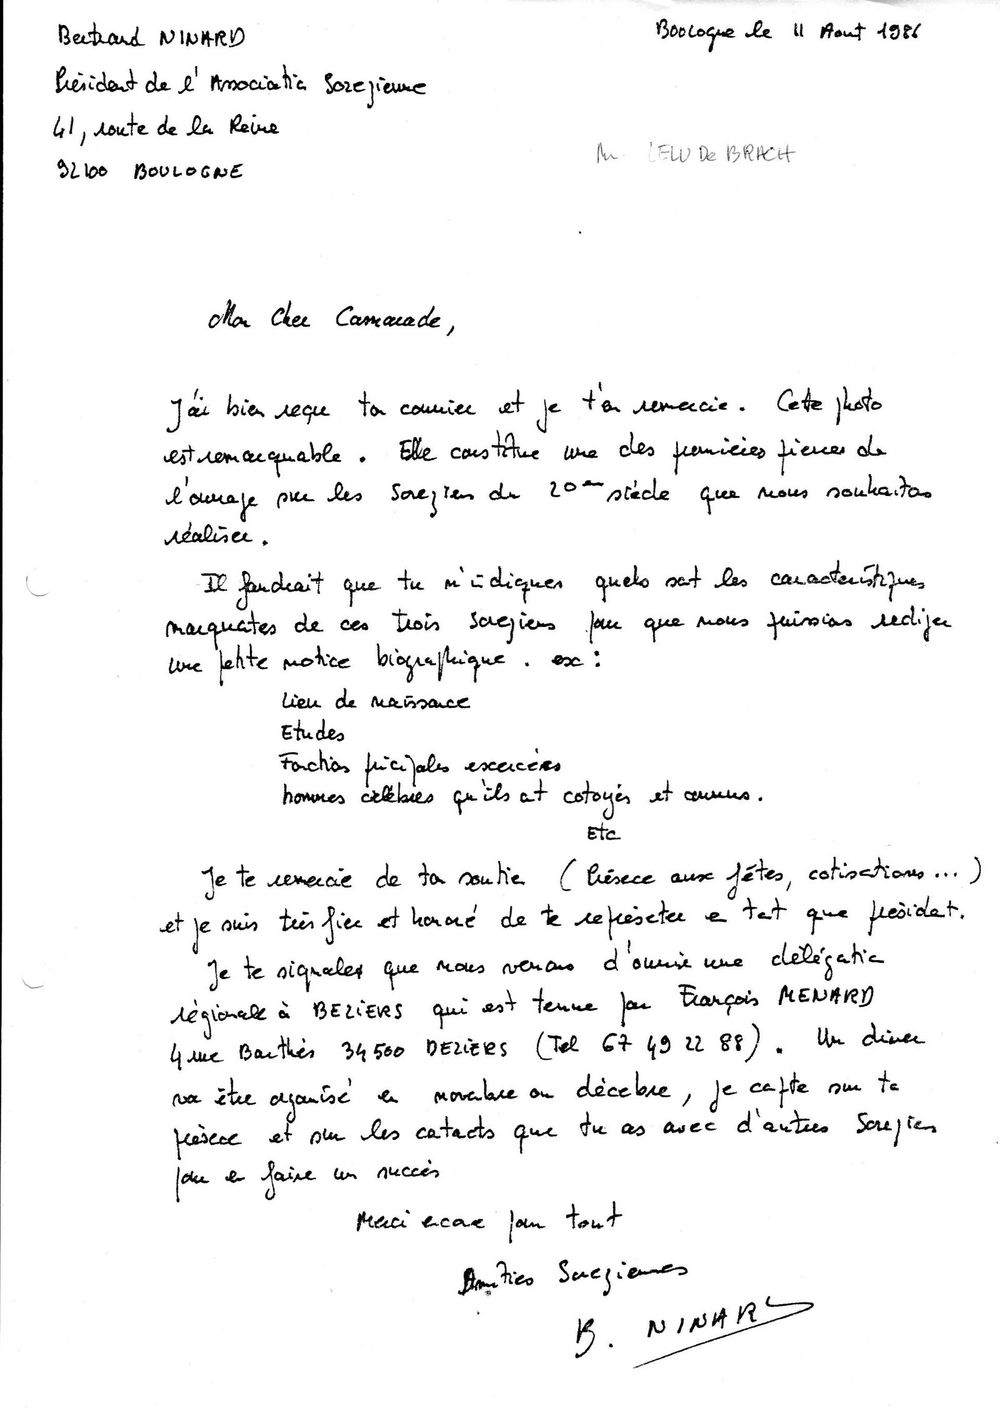 Bertrand NINARD
Boulogne le 11 Aout 1986
Président de l'Association Sorezienne
41, route de la Reine
92100 BOULOGNE
M. LELU De BRACH
Mon Cher Camarade,
J'ai bien reçu ton courrier et je t'en remercie. Cette photo
est remarquable. Elle constitue une des premières pierres de
l'ouvrage sur les Soreziens du 20ème siècle que nous souhaitons
réaliser.
Il faudrait que tu m'indiques quels sont les caractéristiques
marquantes de ces trois Soreziens pour que nous puissions rediger
une petite notice biographique. ex :
Lieu de naissance
Etudes
Fonctions principales exercées
hommes célèbres qu'ils ont cotoyés et connus.
Etc
Je te remercie de ton soutien (Présence aux fêtes, cotisations...)
et je suis très fier et honoré de te représenter en tant que président.
Je te signale que nous venons d'ouvrir une délégation
régionale à BEZIERS qui est tenue par François MENARD
4 rue Barthès 34500 BEZIERS (Tel 67 49 22 88). Un diner
va être organisé en novembre ou décembre, je compte sur ta
présence et sur les contacts que tu as avec d'autres Soreziens
pour en faire un succès
Merci encore pour tout
Amitiés Soreziennes
B. NINARD